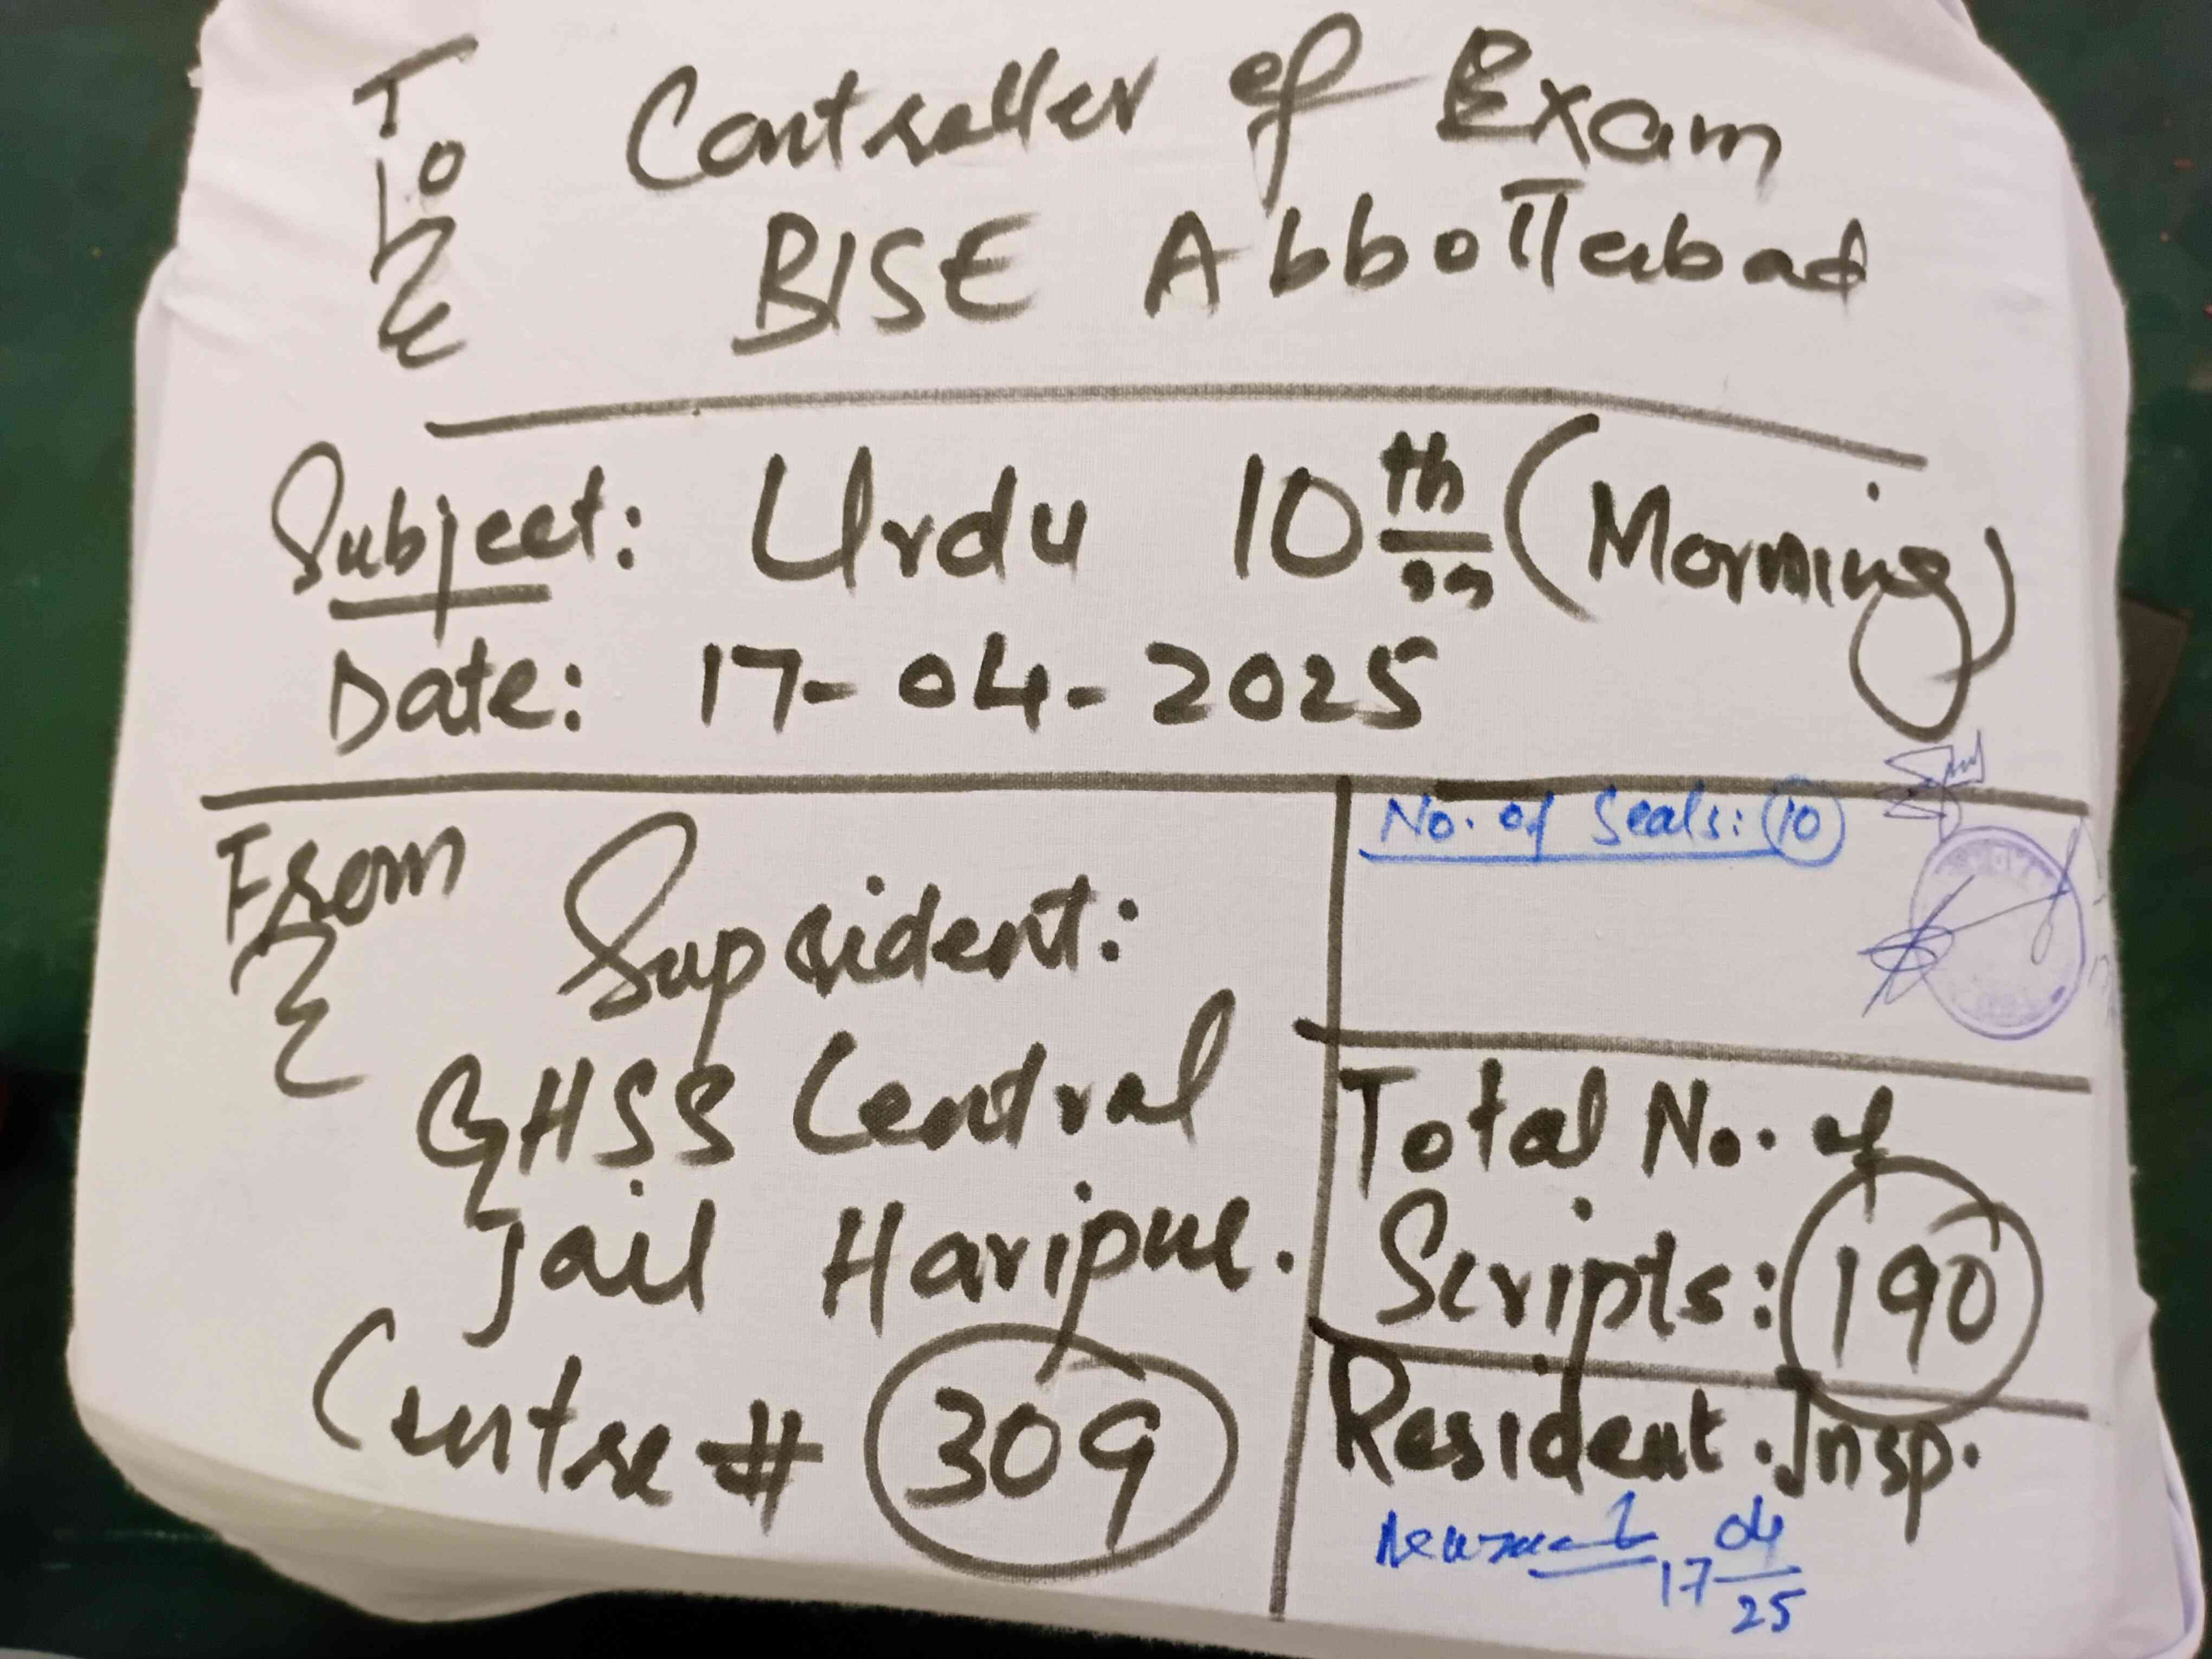 To
Controller of Exam
BISE Abbottabad
Subject: Urdu 10th (Morning)
Date: 17-04-2025
From
Supridient:
GHSS Central
Jail Haripur.
Centre # 309
No. of Seals: 10
Total No. of
Scripts: 190
Resident. Insp.
17 04/25